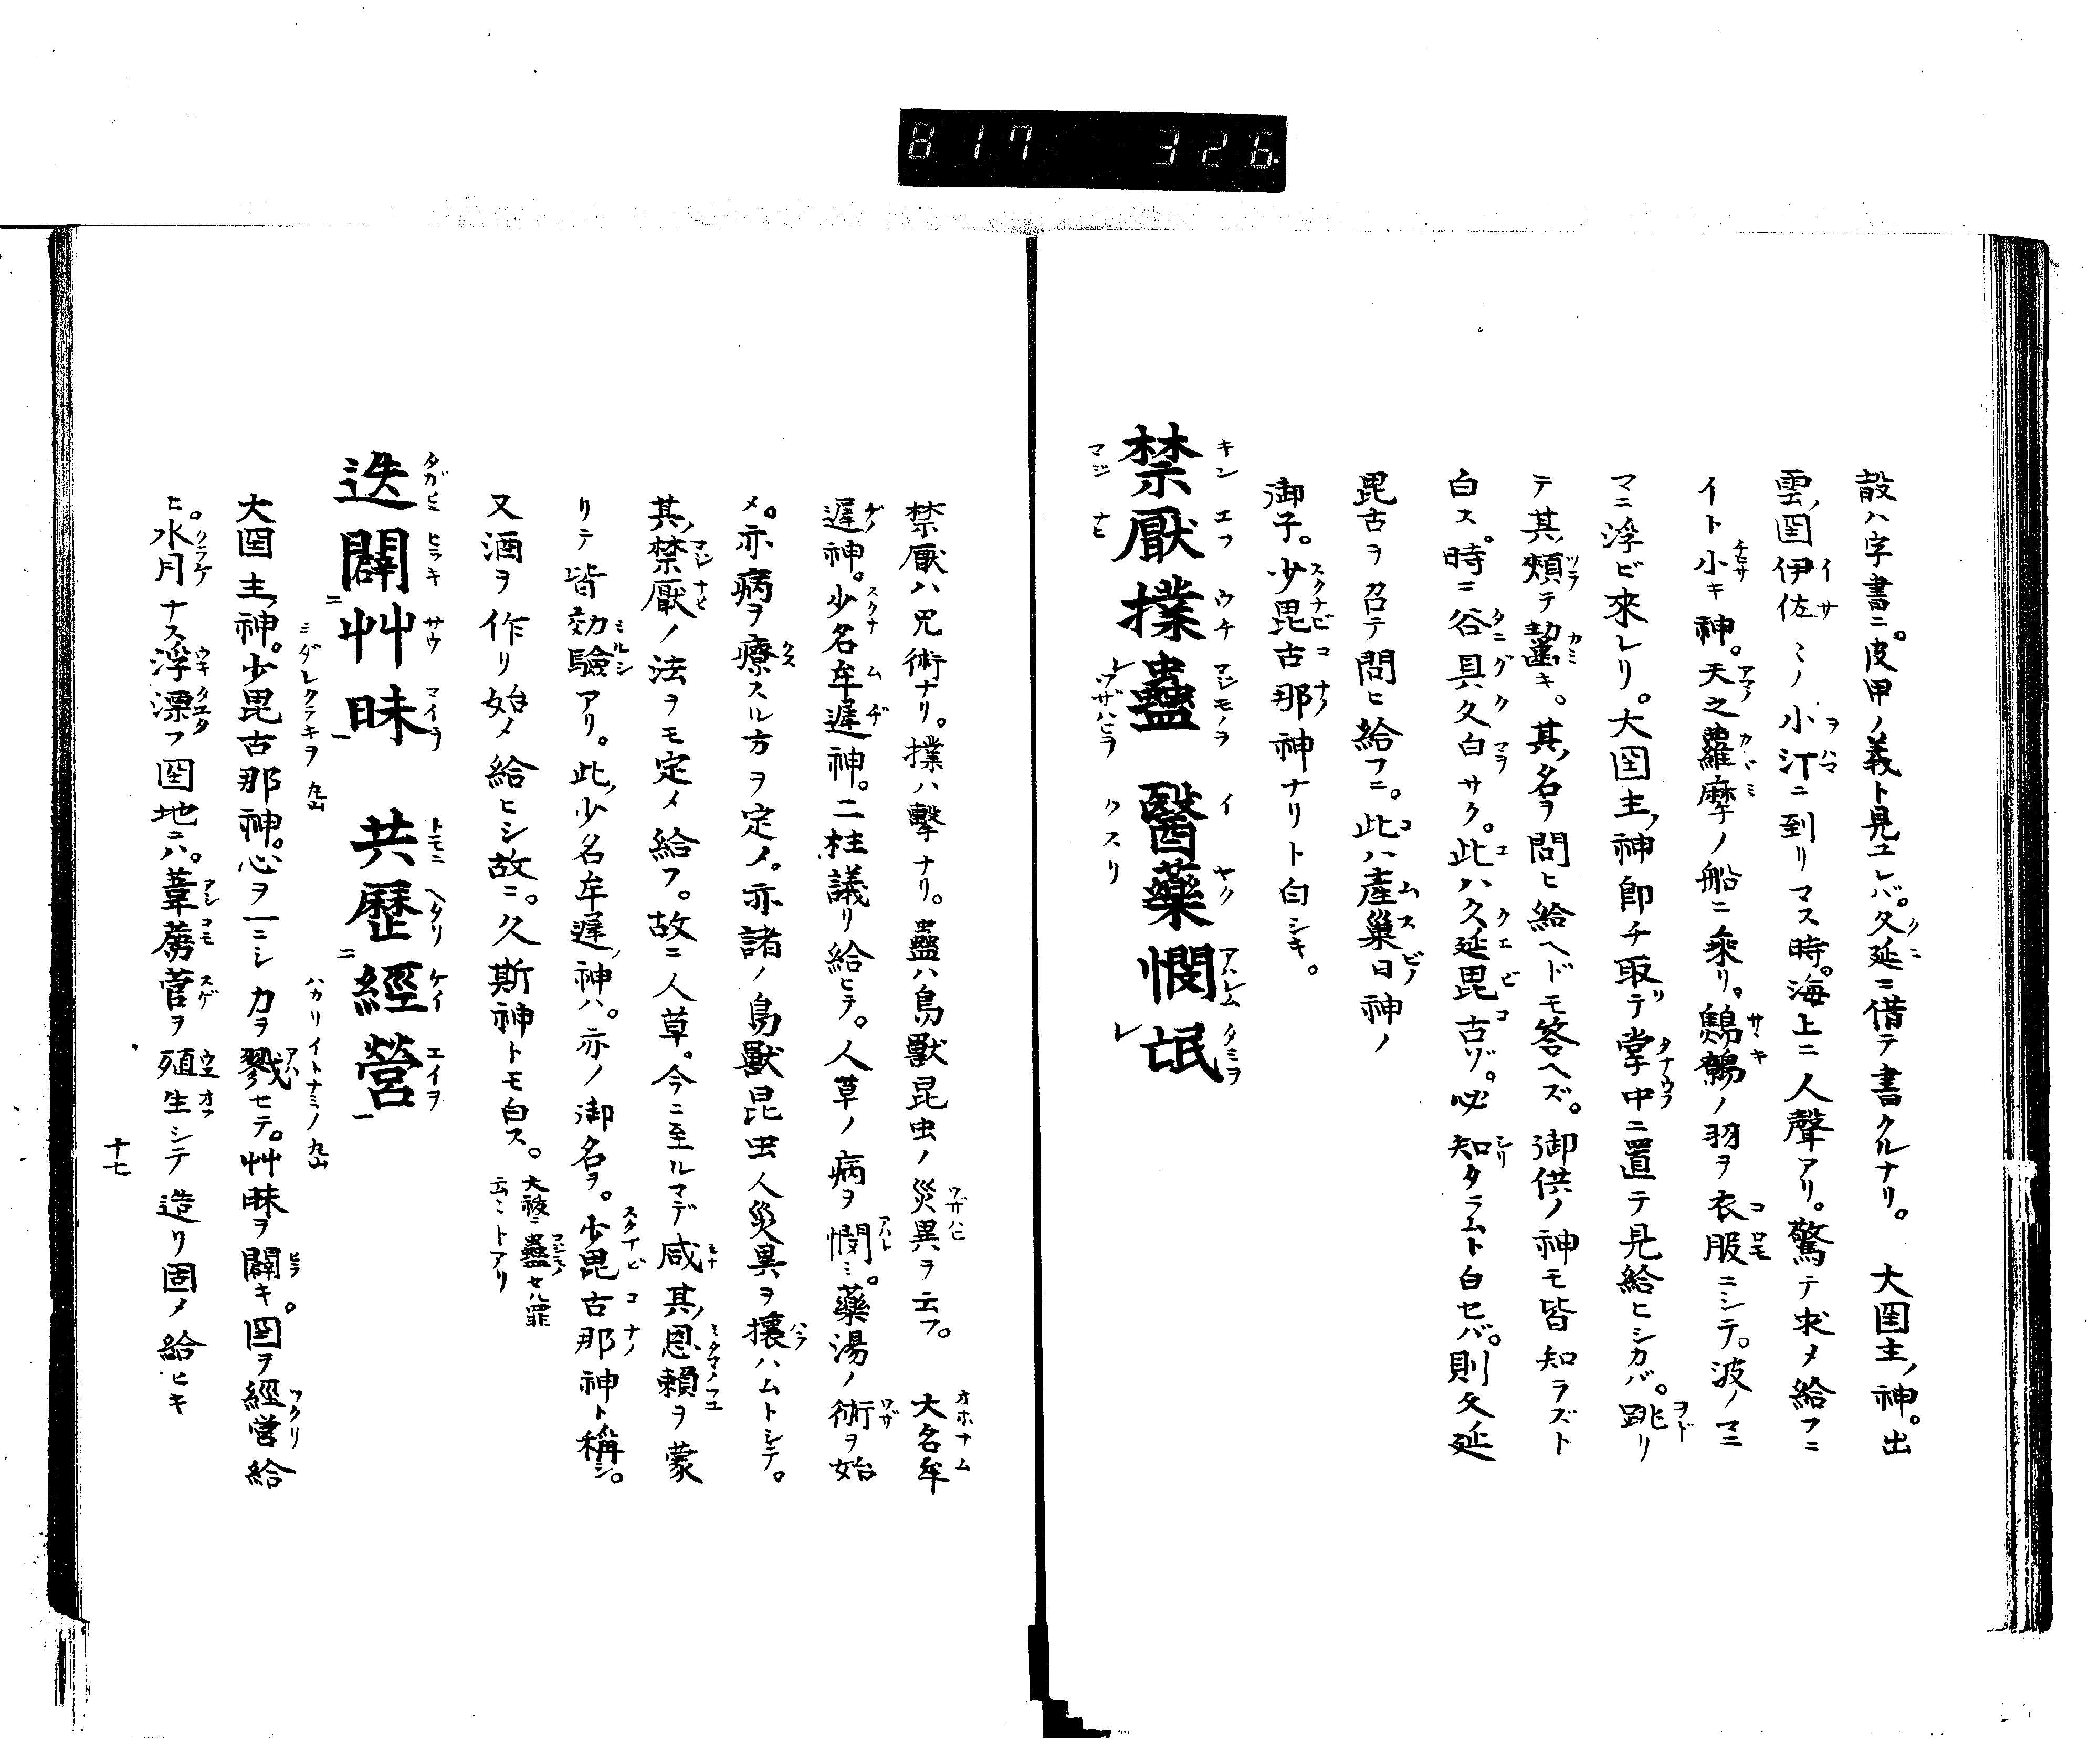 817 326.
殻ハ字書ニ。皮甲ノ義ト見エレバ。久延ニ借テ書クルナリ。 大国主ノ神。出
雲ノ国伊佐ミノ小汀ニ到リマス時。海上ニ人聲アリ。驚テ求メ給フニ
イト小キ神。天之蘿摩ノ船ニ乗リ。鷦鷯ノ羽ヲ衣服ニシテ。波ノマニ
マニ浮ビ來レリ。大国主ノ神即チ取テ掌中ニ置テ見給ヒシカバ。跳リ
テ其ノ頬ヲ齧キ。其ノ名ヲ問ヒ給ヘドモ答ヘズ。御供ノ神モ皆知ラズト
白ス。時ニ谷具久白サク。此ハ久延毘古ゾ。必知タラムト白セバ。則久延
毘古ヲ召テ問ヒ給フニ。此ハ産巣日神ノ
御子。少毘古那神ナリト白シキ。
禁厭撲蠱 醫藥憫氓
キン エフ ウチ マジモノヲ イ ヤク アハレム タミヲ
マジ ナヒ ワザハヒヲ クスリ
禁厭ハ咒術ナリ。撲ハ撃ナリ。蠱ハ鳥獸昆虫ノ災異ヲ云フ。 大名牟
遅神。少名牟遅神。二柱議リ給ヒテ。人草ノ病ヲ憫ミ。藥湯ノ術ヲ始
メ。亦病ヲ療スル方ヲ定メ。亦諸ノ鳥獸昆虫人災異ヲ攘ハムトシテ。
其ノ禁厭ノ法ヲモ定メ給フ。故ニ人草。今ニ至ルマデ咸其ノ恩頼ヲ蒙
リテ皆効驗アリ。此ノ少名牟遅ノ神ハ。亦ノ御名ヲ。少毘古那神ト稱シ。
又酒ヲ作リ始メ給ヒシ故ニ。久斯神トモ白ス。 大祓ニ蠱セル罪
云ミトアリ
迭闢艸昧 共歴經營
タガヒニ ヒラキ サウ マイヲ トモニ ヘタリ ケイ エイヲ
ミダレクラキヲ ハカリイトナミノ
大国主ノ神。少毘古那神。心ヲ一ニシ力ヲ戮セテ。艸昧ヲ闢キ。国ヲ經営給
ヒ。水月ナス浮漂フ国地ニハ。葦薦菅ヲ殖生シテ造リ固メ給ヒキ
十七